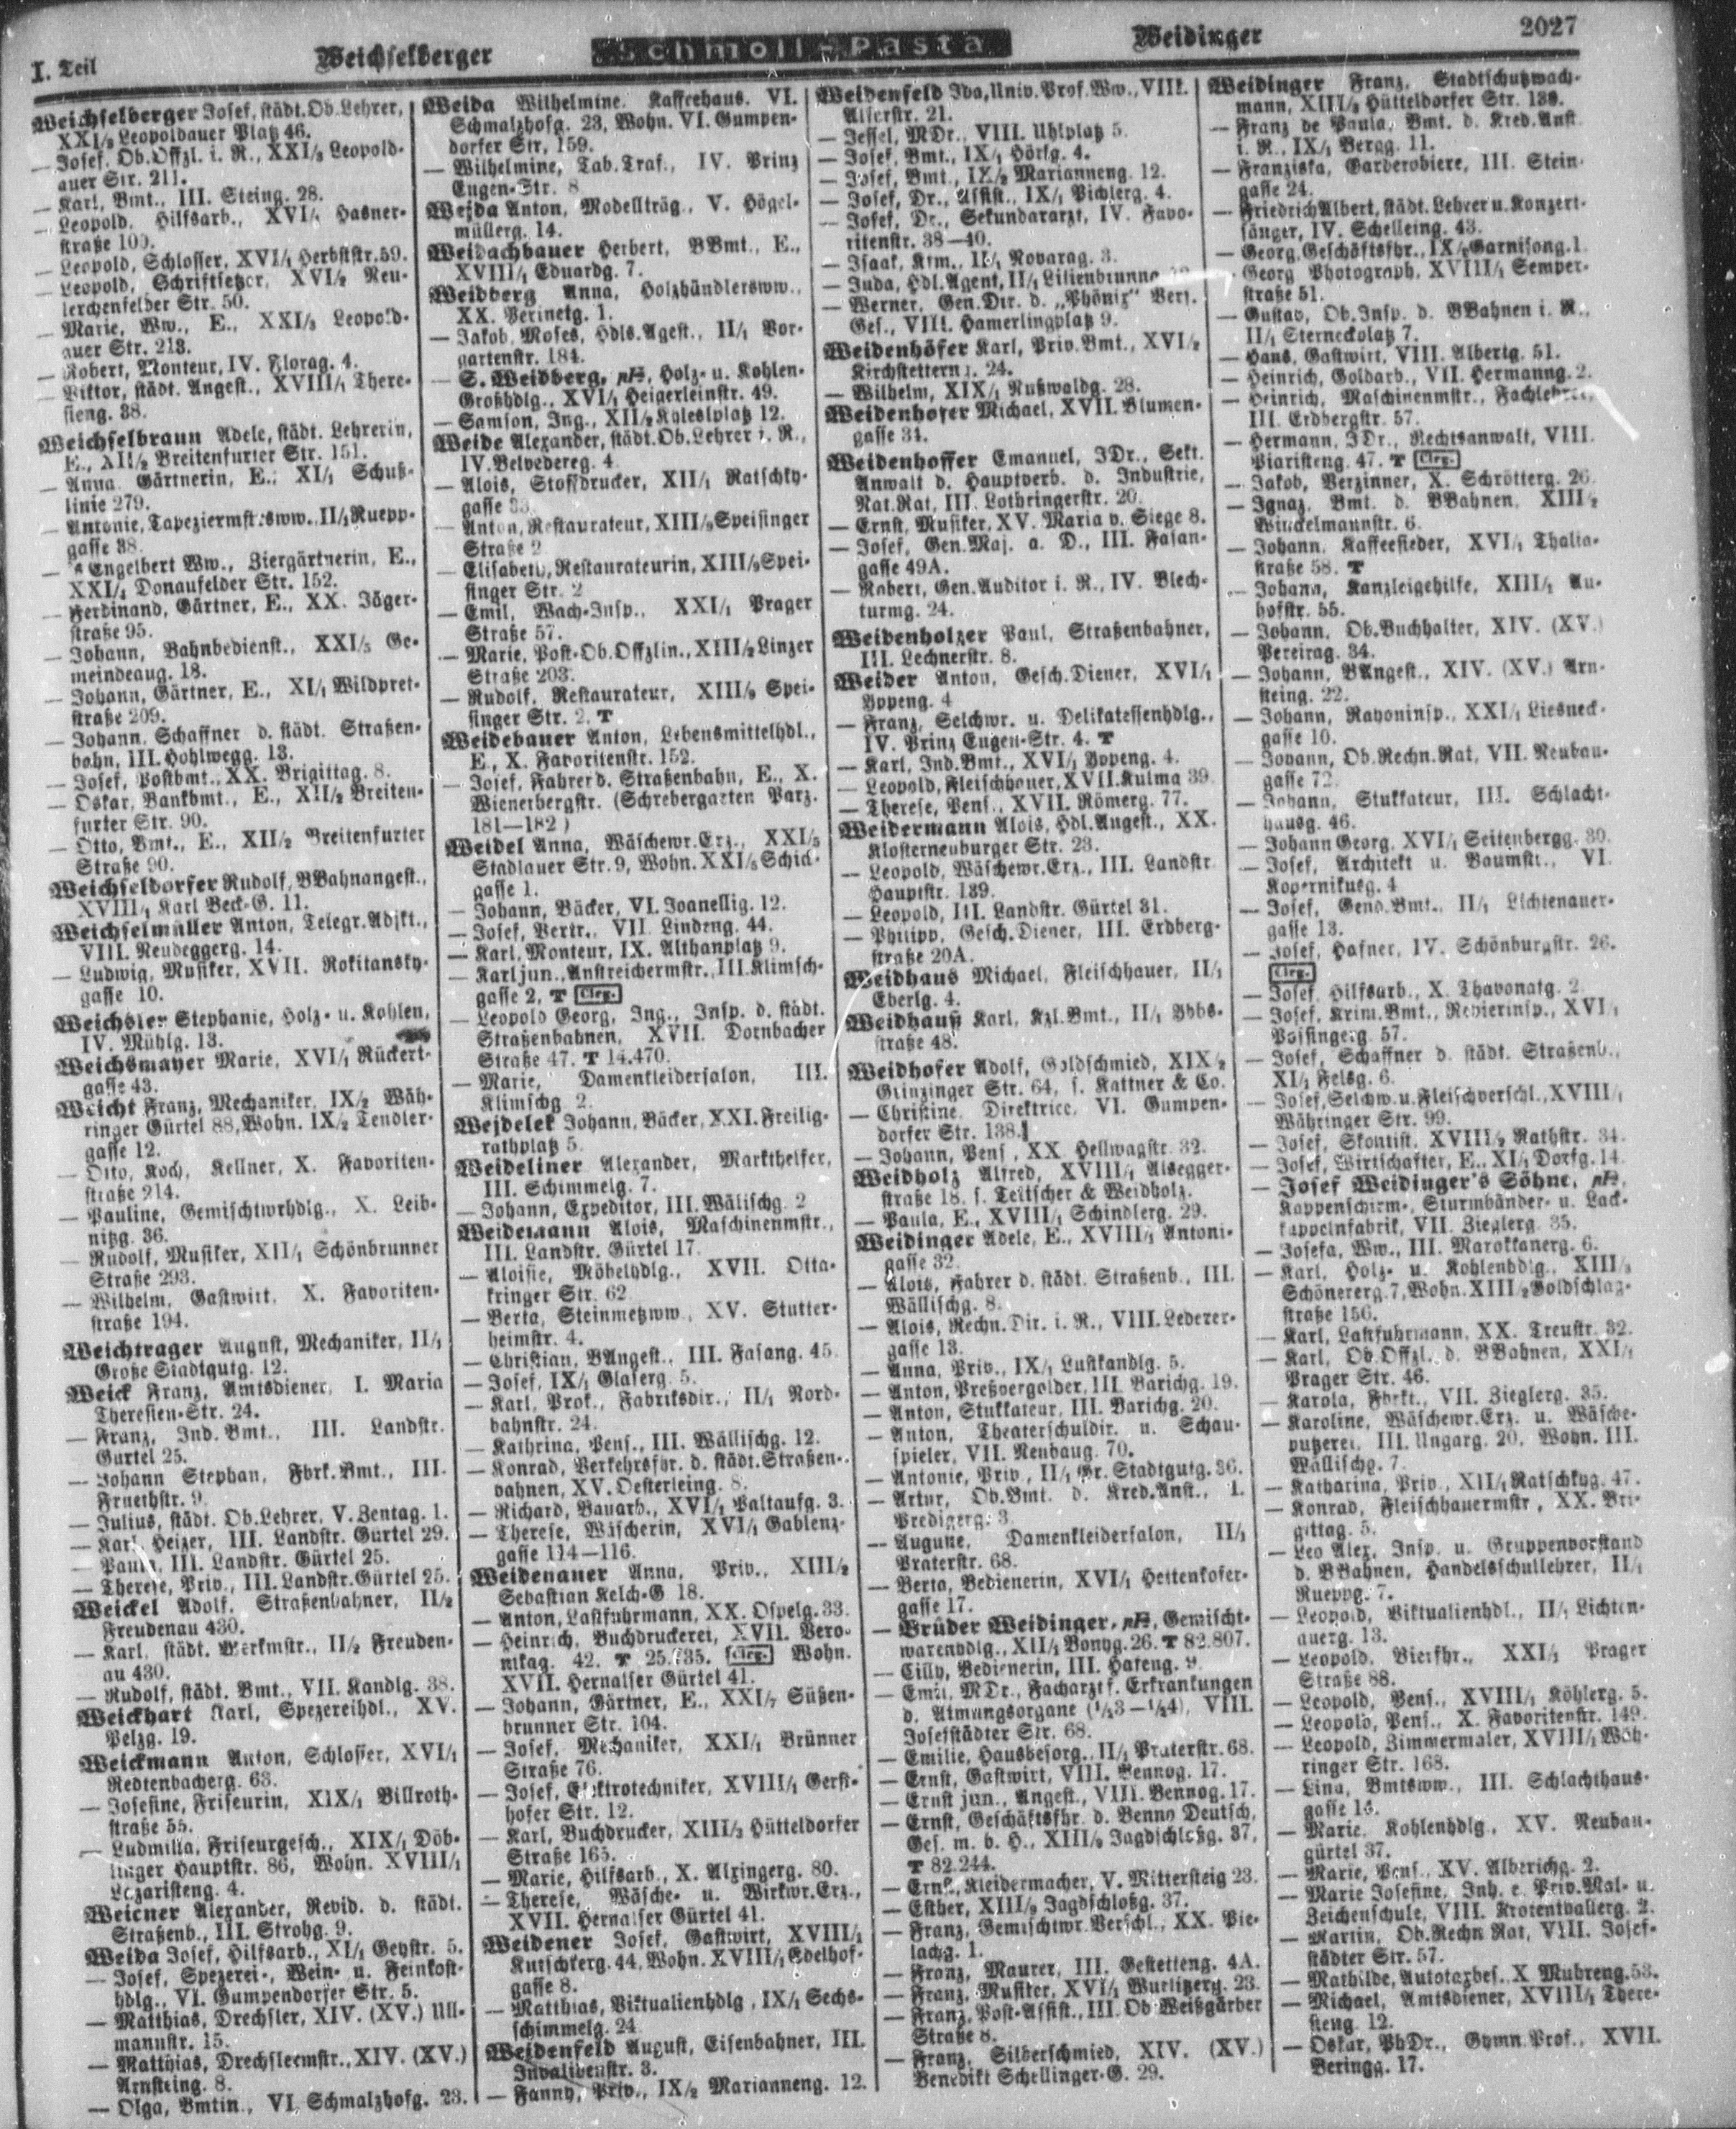 I. Teil
Weichselberger
Schmoll-Pasta
Weidinger
2027
Weichselberger Josef, städt. Ob. Lehrer,
XXI/3 Leopoldauer Platz 46.
— Josef, Ob. Offzl. i. R., XXI/3 Leopold-
auer Str. 211.
— Karl, Bmt., III. Steing. 28.
— Leopold, Hilfsarb., XVI/1 Hasner-
straße 100.
— Leopold, Schlosser, XVI/1 Herbststr. 59.
— Leopold, Schriftsetzer, XVI/2 Neu-
lerchenfelder Str. 50.
— Marie, Ww., E., XXI/3 Leopold-
auer Str. 213.
— Robert, Monteur, IV. Florag. 4.
— Viktor, städt. Angest., XVIII/1 There-
sieng. 38.
Weichselbraun Adele, städt. Lehrerin,
E., XII/2 Breitenfurter Str. 151.
— Anna, Gärtnerin, E., XI/1 Schuß-
linie 279.
— Antonie, Tapeziermstrsww., II/1 Ruepp-
gasse 38.
— Engelbert Ww., Ziergärtnerin, E.,
XXI/1 Donaufelder Str. 152.
— Ferdinand, Gärtner, E., XX. Jäger-
straße 95.
— Johann, Bahnbedienst., XXI/5 Ge-
meindeaug. 18.
— Johann, Gärtner, E., XI/1 Wildpret-
straße 209.
— Johann, Schaffner d. städt. Straßen-
bahn, III. Hohlwegg. 13.
— Josef, Postbmt., XX. Brigittag. 8.
— Oskar, Bankbmt., E., XII/2 Breiten-
furter Str. 90.
— Otto, Bmt., E., XII/2 Breitenfurter
Straße 90.
Weichseldorfer Rudolf, BBahnangest.,
XVIII/1 Karl Beck-G. 11.
Weichselmüller Anton, Telegr. Adjkt.,
VIII. Neudeggerg. 14.
— Ludwig, Musiker, XVII. Rokitansky-
gasse 10.
Weichsler Stephanie, Holz- u. Kohlen,
IV. Mühlg. 13.
Weichsmayer Marie, XVI/1 Rückert-
gasse 43.
Weicht Franz, Mechaniker, IX/2 Wäh-
ringer Gürtel 88, Wohn. IX/2 Tendler-
gasse 12.
— Otto, Koch, Kellner, X. Favoriten-
straße 214.
— Pauline, Gemischtwrhdlg., X. Leib-
nitzg. 36.
— Rudolf, Musiker, XII/1 Schönbrunner
Straße 293.
— Wilhelm, Gastwirt, X. Favoriten-
straße 194.
Weichtrager August, Mechaniker, II/1
Große Stadtgutg. 12.
Weick Franz, Amtsdiener, I. Maria
Theresien-Str. 24.
— Franz, Ind. Bmt., III. Landstr.
Gürtel 25.
— Johann Stephan, Fbrk. Bmt., III.
Fruethstr. 9.
— Julius, städt. Ob. Lehrer, V. Zentag. 1.
— Karl, Heizer, III. Landstr. Gürtel 29.
— Paula, III. Landstr. Gürtel 25.
— Therese, Priv., III. Landstr. Gürtel 25.
Weickel Adolf, Straßenbahner, II/2
Freudenau 430.
— Karl, städt. Werkmstr., II/2 Freuden-
au 430.
— Rudolf, städt. Bmt., VII. Kandlg. 38.
Weickhart Karl, Spezereihdl., XV.
Pelzg. 19.
Weickmann Anton, Schlosser, XVI/1
Redtenbacherg. 63.
— Josefine, Friseurin, XIX/1 Billroth-
straße 55.
— Ludmilla, Friseurgesch., XIX/1 Döb-
linger Hauptstr. 86, Wohn. XVIII/1
Lazaristeng. 4.
Weicner Alexander, Revid. d. städt.
Straßenb., III. Strohg. 9.
Weida Josef, Hilfsarb., XI/1 Geystr. 5.
— Josef, Spezerei-, Wein- u. Feinkost-
hdlg., VI. Gumpendorfer Str. 5.
— Matthias, Drechsler, XIV. (XV.) Ull-
mannstr. 15.
— Matthias, Drechslermstr., XIV. (XV.)
Arnsteing. 8.
— Olga, Bmtin., VI. Schmalzhofg. 23.
Weida Wilhelmine, Kaffeehaus, VI.
Schmalzhofg. 23, Wohn. VI. Gumpen-
dorfer Str. 159.
— Wilhelmine, Tab. Traf., IV. Prinz
Eugen-Str. 8.
Wejda Anton, Modellträg., V. Högel-
müllerg. 14.
Weidachbauer Herbert, BBmt., E.,
XVIII/1 Eduardg. 7.
Weidberg Anna, Holzhändlersww.,
XX. Perinetg. 1.
— Jakob, Moses, Hdls. Agest., II/1 Vor-
gartenstr. 184.
— S. Weidberg, pH, Holz- u. Kohlen-
Großhdlg., XVI/1 Heigerleinstr. 49.
— Samson, Ing., XII/2 Khleslplatz 12.
Weide Alexander, städt. Ob. Lehrer i. R.,
IV. Belvedereg. 4.
— Alois, Stoffdrucker, XII/1 Ratschky-
gasse
— Anton, Restaurateur, XIII/9 Speisinger
Straße 2.
— Elisabeth, Restaurateurin, XIII/9 Spei-
singer Str. 2.
— Emil, Wach-Insp., XXI/1 Prager
Straße 57.
— Marie, Post-Ob. Offzlin., XIII/2 Linzer
Straße 203.
— Rudolf, Restaurateur, XIII/9 Spei-
singer Str. 2. T
Weidebauer Anton, Lebensmittelhdl.,
E., X. Favoritenstr. 152.
— Josef, Fahrer d. Straßenbahn, E., X.
Wienerbergstr. (Schrebergarten Parz.
181—182)
Weidel Anna, Wäschewr. Erz., XXI/5
Stadlauer Str. 9, Wohn. XXI/5 Schick-
gasse 1.
— Johann, Bäcker, VI. Joanellig. 12.
— Josef, Vertr., VII. Lindeng. 44.
— Karl, Monteur, IX. Althanplatz 9.
— Karl jun., Anstreichermstr., III. Klimsch-
gasse 2, T Clrg.
— Leopold Georg, Ing., Insp. d. städt.
Straßenbahnen, XVII. Dornbacher
Straße 47. T 14.470.
— Marie, Damenkleidersalon, III.
Klimschg. 2.
Wejdelek Johann, Bäcker, XXI. Freilig-
rathplatz 5.
Weideliner Alexander, Markthelfer,
III. Schimmelg. 7.
— Johann, Expeditor, III. Wälischg. 2
Weidemann Alois, Maschinenmstr.,
III. Landstr. Gürtel 17.
— Aloisie, Möbelhdlg., XVII. Otta-
kringer Str. 62.
— Berta, Steinmetzww., XV. Stutter-
heimstr. 4.
— Christian, BAngest., III. Fasang. 45.
— Josef, IX/1 Glaserg. 5.
— Karl, Prok., Fabriksdir., II/1 Nord-
bahnstr. 24.
— Kathrina, Pens., III. Wällischg. 12.
— Konrad, Verkehrsfhr. d. städt. Straßen-
bahnen, XV. Oesterleing. 8.
— Richard, Bauarb., XVI/1 Paltaufg. 3.
— Therese, Wäscherin, XVI/1 Gablenz-
gasse 114—116.
Weidenauer Anna, Priv., XIII/2
Sebastian Kelch-G 18.
— Anton, Lastfuhrmann, XX. Ospelg. 33.
— Heinrich, Buchdruckerei, XVII. Vero-
nikag. 42. T Clrg. Wohn.
XVII. Hernalser Gürtel 41.
— Johann, Gärtner, E., XXI/7 Süßen-
brunner Str. 104.
— Josef, Mechaniker, XXI/1 Brünner
Straße 76.
— Josef, Elektrotechniker, XVIII/1 Gerst-
hofer Str. 12.
— Karl, Buchdrucker, XIII/3 Hütteldorfer
Straße 165.
— Marie, Hilfsarb., X. Alxingerg. 80.
— Therese, Wäsche- u. Wirkwr. Erz.,
XVII. Hernalser Gürtel 41.
Weidener Josef, Gastwirt, XVIII/1
Kutschkerg. 44, Wohn. XVIII/1 Edelhof-
gasse 8.
— Matthias, Viktualienhdlg., IX/1 Sechs-
schimmelg. 24
Weidenfeld August, Eisenbahner, III.
Invalidenstr. 3.
— Fanny, Priv., IX/2 Marianneng. 12.
Weidenfeld Ida, Univ. Prof. Ww., VIII.
Alserstr. 21.
— Jessel, MDr., VIII. Uhlplatz 5.
— Josef, Bmt., IX/1 Hörlg. 4.
— Josef, Bmt., IX/2 Marianneng. 12.
— Josef, Dr., Assist., IX/1 Pichlerg. 4.
— Josef, Dr., Sekundararzt, IV. Favo-
ritenstr. 38—40.
— Isaak, Kfm., II/1 Novarag. 3.
— Juda, Hdl. Agent, II/1 Lilienbrunng.
— Werner, Gen. Dir. d. „Phönix" Vers.
Ges., VIII. Hamerlingplatz 9.
Weidenhöfer Karl, Priv. Bmt., XVI/2
Kirchstetterng. 24.
— Wilhelm, XIX/1 Nußwaldg. 28.
Weidenhofer Michael, XVII. Blumen-
gasse 34.
Weidenhoffer Emanuel, JDr., Sekt.
Anwalt d. Hauptverb. d. Industrie,
Nat. Rat, III. Lothringerstr. 20.
— Ernst, Musiker, XV. Maria v. Siege 8.
— Josef, Gen. Maj. a. D., III. Fasan-
gasse 49A.
— Robert, Gen. Auditor i. R., IV. Blech-
turmg. 24.
Weidenholzer Paul, Straßenbahner,
III. Lechnerstr. 8.
Weider Anton, Gesch. Diener, XVI/1
Yppeng. 4
— Franz, Selchwr. u. Delikatessenhdlg.,
IV. Prinz Eugen-Str. 4. T
— Karl, Ind. Bmt., XVI/1 Yppeng. 4.
— Leopold, Fleischhauer, XVII. Kulma 39.
— Therese, Pens., XVII. Römerg. 77.
Weidermann Alois, Hdl. Angest., XX.
Klosterneuburger Str. 23.
— Leopold, Wäschewr. Erz., III. Landstr.
Hauptstr. 139.
— Leopold, III. Landstr. Gürtel 31.
— Philipp, Gesch. Diener, III. Erdberg-
straße 20A.
Weidhaus Michael, Fleischhauer, II/1
Eberlg. 4.
Weidhauß Karl, Kzl. Bmt., II/1 Ybbs-
straße 48.
Weidhofer Adolf, Goldschmied, XIX/2
Grinzinger Str. 64, s. Kattner & Co.
— Christine, Direktrice, VI. Gumpen-
dorfer Str. 138.
— Johann, Pens., XX. Hellwagstr. 32.
Weidholz Alfred, XVIII/1 Alsegger-
straße 18, s. Teltscher & Weidholz.
— Paula, E., XVIII/1 Schindlerg. 29.
Weidinger Adele, E., XVIII/1 Antoni-
gasse 32.
— Alois, Fahrer d. städt. Straßenb., III.
Wällischg. 8.
— Alois, Rechn. Dir. i. R., VIII. Lederer-
gasse 13.
— Anna, Priv., IX/1 Lustkandlg. 5.
— Anton, Preßvergolder, III. Barichg. 19.
— Anton, Stukkateur, III. Barichg. 20.
— Anton, Theaterschuldir. u. Schau-
spieler, VII. Neubaug. 70.
— Antonie, Priv., II/1 Gr. Stadtgutg. 36.
— Artur, Ob. Bmt. d. Kred. Anst., I.
Predigerg. 3.
— Augune, Damenkleidersalon, II/1
Praterstr. 68.
— Berta, Bedienerin, XVI/1 Hettenkofer-
gasse 17.
— Brüder Weidinger, pH, Gemischt-
warenhdlg., XII/1 Bonyg. 26. T 82.807.
— Cilly, Bedienerin, III. Hafeng. 9.
— Emil, MDr., Facharzt f. Erkrankungen
d. Atmungsorgane (1/23—1/24), VIII.
Josefstädter Str. 68.
— Emilie, Hausbesorg., II/1 Praterstr. 68.
— Ernst, Gastwirt, VIII. Bennog. 17.
— Ernst jun., Angest., VIII. Bennog. 17.
— Ernst, Geschäftsfhr. d. Benno Deutsch,
Ges. m. b. H., XIII/9 Jagdschloßg. 37,
T 82.244.
— Ernst, Kleidermacher, V. Mittersteig 23.
— Esther, XIII/9 Jagdschloßg. 37.
— Franz, Gemischtwr. Verschl., XX. Pie-
lachg. 1.
— Franz, Maurer, III. Gestetteng. 4A.
— Franz, Musiker, XVI/1 Wurlitzerg. 23.
— Franz, Post-Assist., III. Ob. Weißgärber
Straße 8.
— Franz, Silberschmied, XIV. (XV.)
Benedikt Schellinger-G. 29.
Weidinger Franz, Stadtschutzwach-
mann, XIII/3 Hütteldorfer Str.
— Franz de Paula, Bmt. d. Kred. Anst.
i. R., IX/1 Bergg. 11.
— Franziska, Garderobiere, III. Stein-
gasse 24.
— Friedrich Albert, städt. Lehrer u. Konzert-
sänger, IV. Schelleing. 43.
— Georg, Geschäftsfhr., IX/2 Garnisong. 1.
— Georg Photograph, XVIII/1 Semper-
straße 51.
— Gustav, Ob. Insp. d. BBahnen i. R.,
II/1 Sterneckplatz 7.
— Hans, Gastwirt, VIII. Albertg. 51.
— Heinrich, Goldarb., VII. Hermanng. 2.
— Heinrich, Maschinenmstr., Fachlehrer,
III. Erdbergstr. 57.
— Hermann, JDr., Rechtsanwalt, VIII.
Piaristeng. 47. T Clrg.
— Jakob, Verzinner, X. Schrötterg. 26.
— Ignaz, Bmt. d. BBahnen, XIII/2
Winckelmannstr. 6.
— Johann, Kaffeesieder, XVI/1 Thalia-
straße 58. T
— Johann, Kanzleigehilfe, XIII/1 Au-
hofstr. 55.
— Johann, Ob. Buchhalter, XIV. (XV.)
Pereirag. 34.
— Johann, BAngest., XIV. (XV.) Arn-
steing. 22.
— Johann, Rayoninsp., XXI/1 Liesneck-
gasse 10.
— Johann, Ob. Rechn. Rat, VII. Neubau-
gasse 72.
— Johann, Stukkateur, III. Schlacht-
hausg. 46.
— Johann Georg, XVI/1 Seitenbergg. 30.
— Josef, Architekt u. Baumstr., VI.
Kopernikusg. 4
— Josef, Geno. Bmt., II/1 Lichtenauer-
gasse 13.
— Josef, Hafner, IV. Schönburgstr. 26.
Clrg.
— Josef, Hilfsarb., X. Thavonatg. 2.
— Josef, Krim. Bmt., Revierinsp., XVI/1
Possingerg. 57.
— Josef, Schaffner d. städt. Straßenb.,
XI/1 Felsg. 6.
— Josef, Selchw. u. Fleischverschl., XVIII/1
Währinger Str. 99.
— Josef, Skontist, XVIII/2 Rathstr. 34.
— Josef, Wirtschafter, E., XI/1 Dorfg. 14.
— Josef Weidinger's Söhne, pH,
Kappenschirm-, Sturmbänder- u. Lack-
kappelnfabrik, VII. Zieglerg. 35.
— Josefa, Ww., III. Marokkanerg. 6.
— Karl, Holz- u. Kohlenhdlg., XIII/3
Schönererg. 7, Wohn. XIII/2 Goldschlag-
straße 156.
— Karl, Lastfuhrmann, XX. Treustr. 32.
— Karl, Ob. Offzl. d. BBahnen, XXI/1
Prager Str. 46.
— Karola, Fbrkt., VII. Zieglerg. 35.
— Karoline, Wäschewr. Erz. u. Wäsche-
putzerei, III. Ungarg. 20, Wohn. III.
Wällischg. 7.
— Katharina, Priv., XII/1 Ratschkyg. 47.
— Konrad, Fleischhauermstr., XX. Bri-
gittag. 5.
— Leo Alex, Insp. u. Gruppenvorstand
d. BBahnen, Handelsschullehrer, II/1
Rueppg. 7.
— Leopold, Viktualienhdl., II/1 Lichten-
auerg. 13.
— Leopold, Bierfhr., XXI/1 Prager
Straße 88.
— Leopold, Pens., XVIII/1 Köhlerg. 5.
— Leopold, Pens., X. Favoritenstr. 149.
— Leopold, Zimmermaler, XVIII/1 Wäh-
ringer Str. 168.
— Lina, Bmtsww., III. Schlachthaus-
gasse
— Marie, Kohlenhdlg., XV. Neubau-
gürtel 37.
— Marie, Pens., XV. Alberichg. 2.
— Marie Josefine, Inh. e. Priv. Mal- u.
Zeichenschule, VIII. Krotenthallerg. 2.
— Martin, Ob. Rechn Rat, VIII. Josef-
städter Str. 57.
— Mathilde, Autotaxbes., X Muhreng. 53.
— Michael, Amtsdiener, XVIII/1 There-
sieng. 12.
— Oskar, PhDr., Gymn. Prof., XVII.
Beringg. 17.